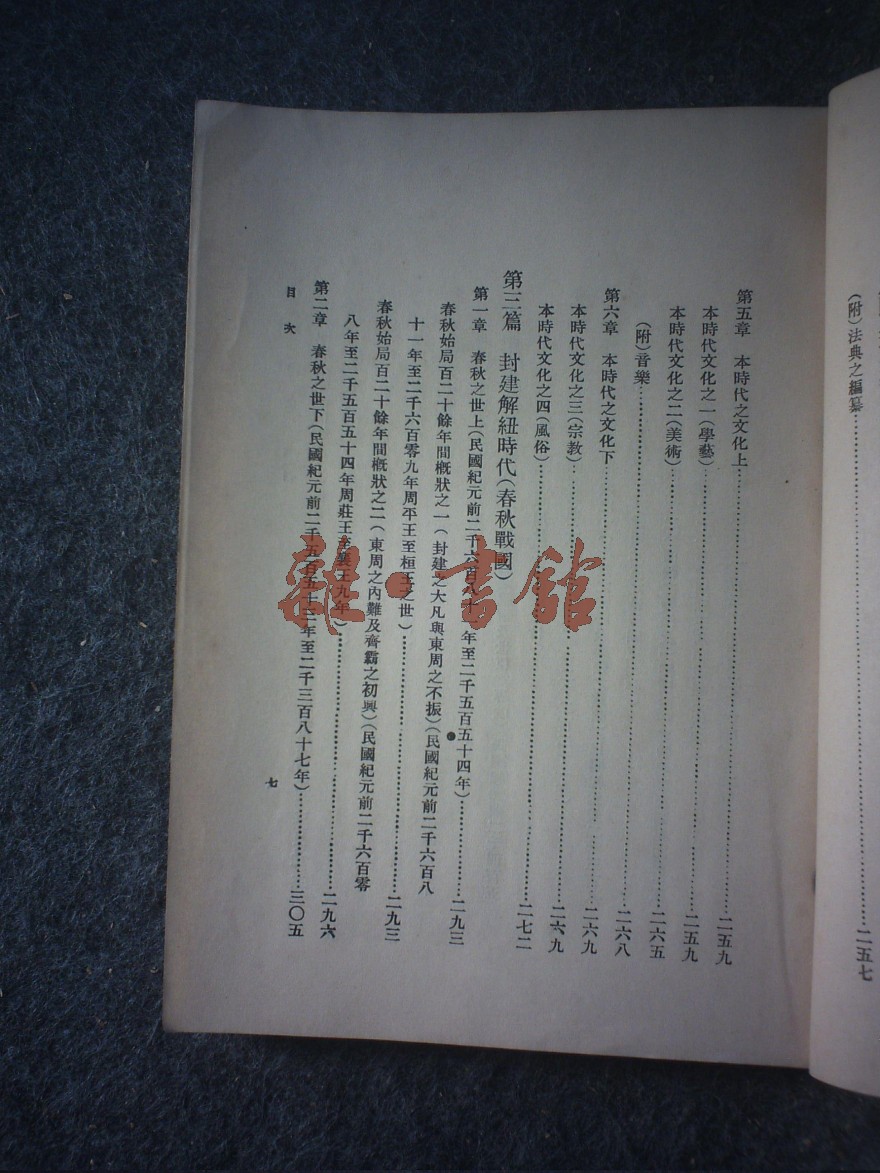 (附)法典之編纂……二五七
第五章　本時代之文化上……二五九
本時代文化之一(學藝)……二五九
本時代文化之二(美術)……二六五
(附)音樂……二六八
第六章　本時代之文化下……二六九
本時代文化之三(宗教)……二六九
本時代文化之四(風俗)……二七二
第三篇　封建解紐時代(春秋戰國)
第一章　春秋之世上(民國紀元前二千六百八十一年至二千五百五十四年)……二九三
春秋始局百二十餘年間概狀之一(封建之大凡與東周之不振)(民國紀元前二千六百八
十一年至二千六百零九年周平王至桓王之世)……二九三
春秋始局百二十餘年間概狀之二(東周之內難及齊霸之初興)(民國紀元前二千六百零
八年至二千五百五十四年周莊王至襄王九年)……二九六
第二章　春秋之世下(民國紀元前二千五百五十三年至二千三百八十七年)……三〇五
目次
七
雜·書館